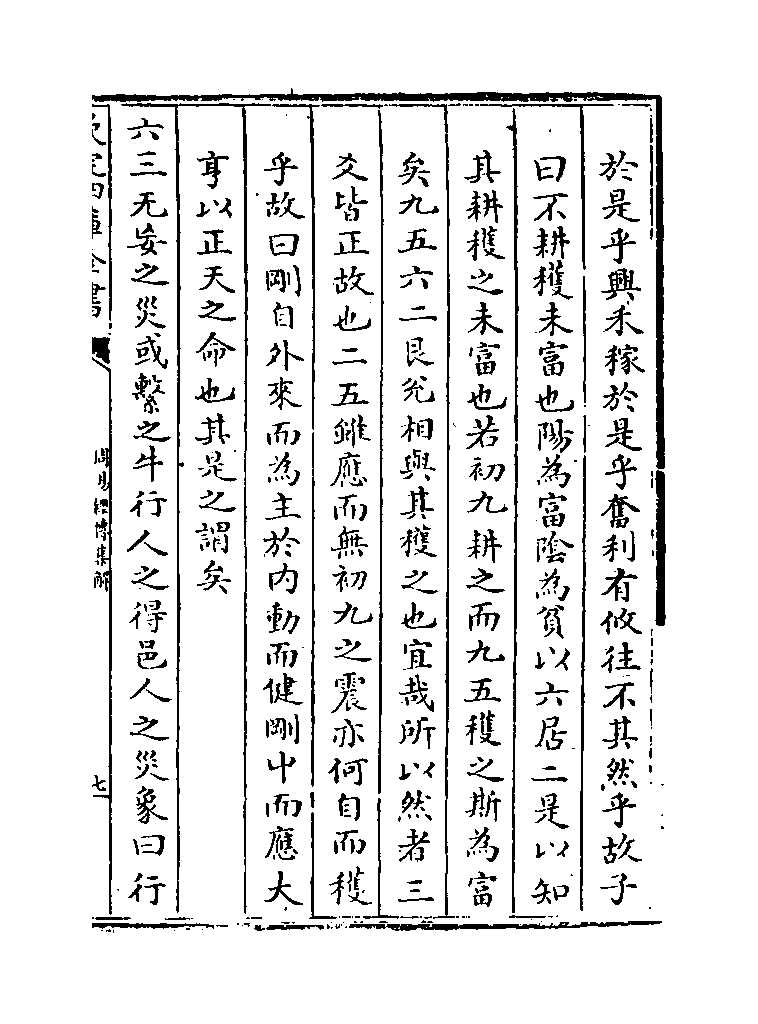 於是乎興禾稼於是乎奮利有攸往不其然乎故子
曰不耕穫未富也陽為富陰為貧以六居二是以知
其耕穫之未富也若初九耕之而九五穫之斯為富
矣九五六二艮兊相與其穫之也宜哉所以然者三
爻皆正故也二五雖應而無初九之震亦何自而穫
乎故曰剛自外來而為主於内動而健剛中而應大
亨以正天之命也其是之謂矣
六三无妄之災或繫之牛行人之得邑人之災象曰行
欽定四庫全書
周易經傳集解
七